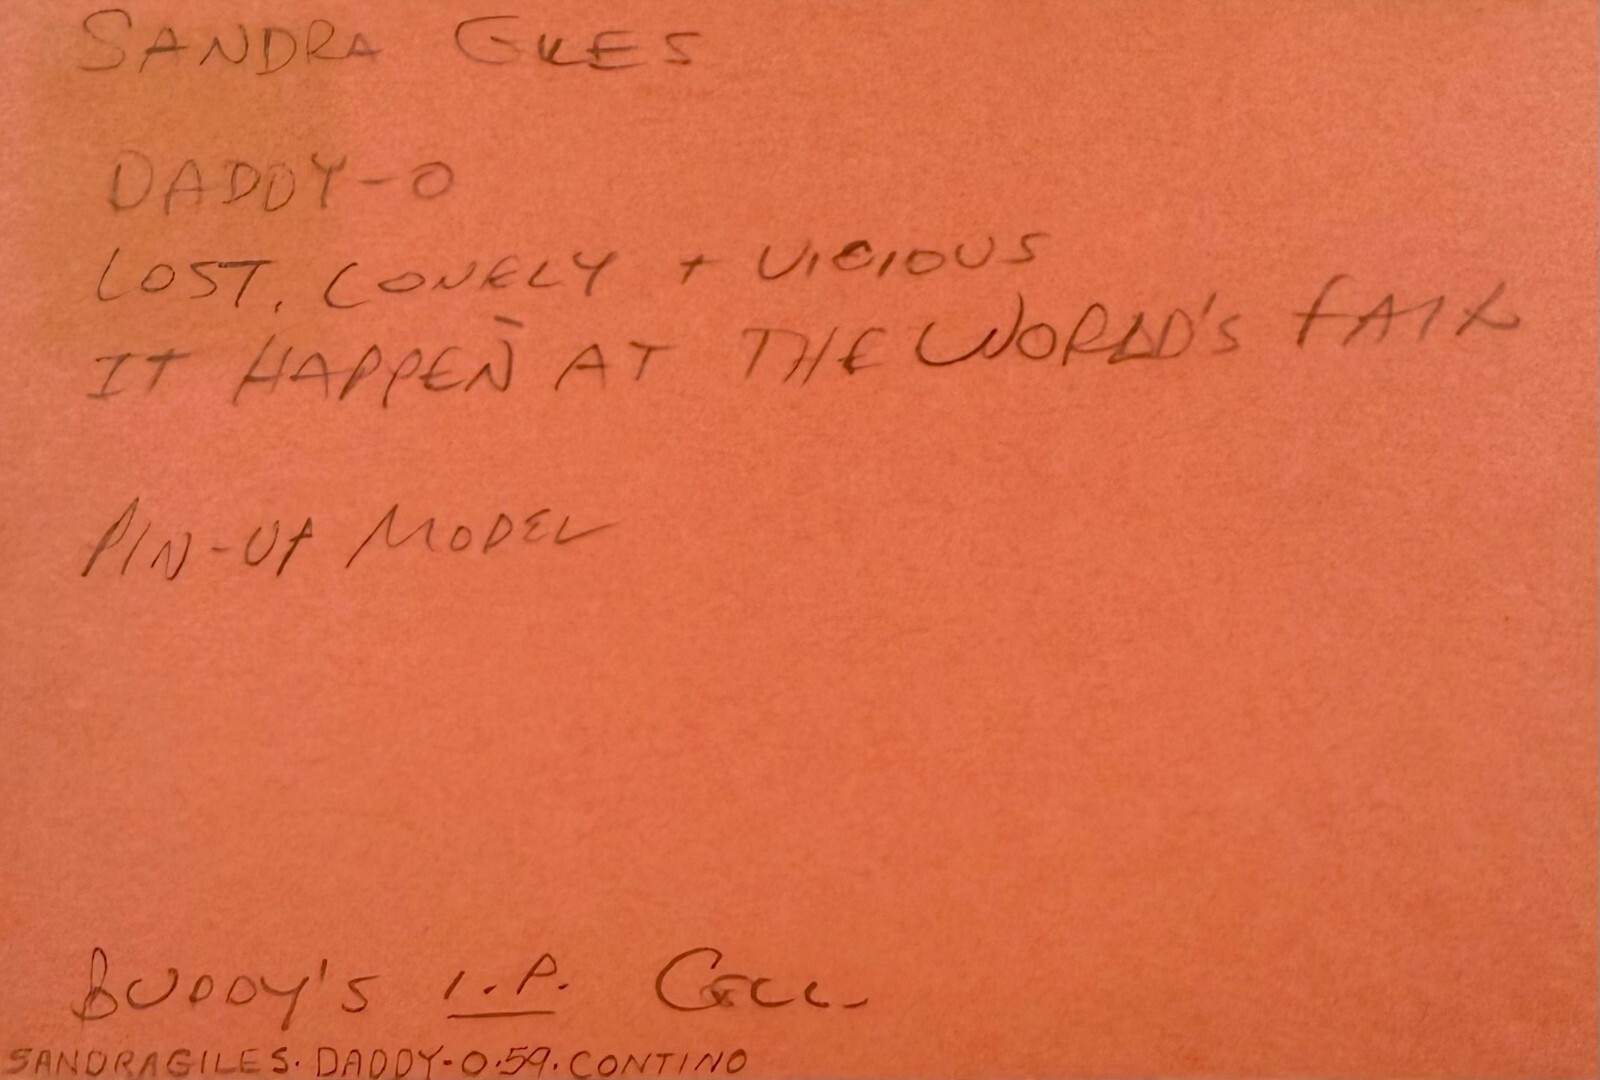 SANDRA GILES
DADDY-O
LOST, LONELY + VICIOUS
IT HAPPEN AT THE WORLD'S FAIR
PIN-UP MODEL
BUDDY'S I.P. COLL
SANDRA GILES. DADDY-O.59. CONTINO